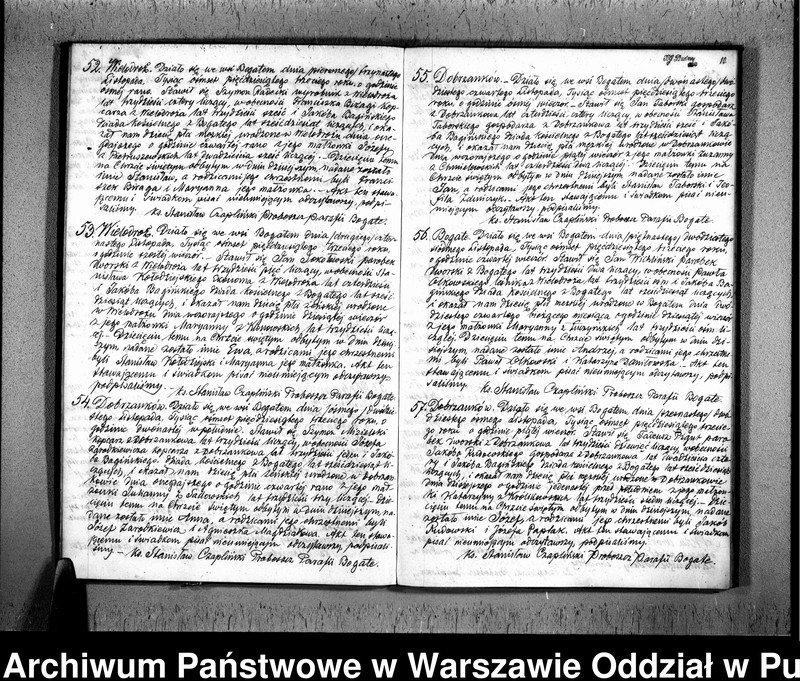 52. Wielodroż. Działo się we wsi Bogatem dnia pierwszego/trzynastego
Listopada, Tysiąc ośmset pięćdziesiątego trzeciego roku, o godzinie
rano. Stawił się Szymon Radecki wyrobnik z Wielodroża
lat trzydzieści cztery liczący, w obecności Franciszka Biragi Kop-
carza z Wielodroża lat trzydzieści sześć i Jakóba Bagińskiego
Dziada kościelnego z Bogatego lat sześćdziesiąt liczących, i oka-
zał nam dziecię płci męzkiej urodzone w Wielodrożu dnia one-
gdajszego o godzinie czwartej rano z jego małżonki Józefy
z lat dwadzieścia sześć liczącej. Dziecięciu temu
na Chrzcie świętym odbytym w dniu dzisiejszym, nadane zostało
imie Stanisław, a rodzicami jego chrzestnemi byli Franci-
szek Biraga i Maryanna jego małżonka. Akt ten stawa-
jącemu i świadkom pisać nieumiejącym odczytany, podpi-
saliśmy. ks. Stanisław Czapliński Proboszcz Parafii Bogate.
53. Wielodroż. Działo się we wsi Bogatem dnia /drugiego/ czter-
nastego Listopada, Tysiąc ośmset pięćdziesiątego trzeciego roku,
o godzinie szóstej wieczór. Stawił się Jan Sokołowski parobek
dworski z Wielodroża lat trzydzieści pięć liczący, w obecności Sta-
nisława Kołodziejskiego z Wielodroża lat czterdzieści
i Jakóba Bagińskiego Dziada kościelnego z Bogatego lat sześć-
dziesiąt liczących, i okazał nam dziecię płci żeńskiej urodzone
w Wielodrożu dnia wczorajszego o godzinie dziesiątej wieczór
z jego małżonki Maryanny z lat trzydzieści liczą-
cej. Dziecięciu temu na Chrzcie świętym odbytym w dniu dzisiej-
szym, nadane zostało imie Ewa, a rodzicami jego chrzestnemi
byli Stanisław i Maryanna jego małżonka. Akt ten
stawającemu i świadkom pisać nieumiejącym odczytany,
podpisaliśmy. ks. Stanisław Czapliński Proboszcz Parafii Bogate.
54. Dobrzanków. Działo się we wsi Bogatem dnia /ósmego/ dwudzie-
stego Listopada, Tysiąc ośmset pięćdziesiątego trzeciego roku, o
godzinie dwunastej w południe. Stawił się Szymon
Kopcarz z Dobrzankowa lat trzydzieści liczący, w obecności Józefa
Zarodkiewicza Kopcarza z Dobrzankowa lat trzydzieści jeden i Jakó-
ba Bagińskiego Dziada kościelnego z Bogatego lat sześćdziesiąt li-
czących, i okazał nam dziecię płci żeńskiej urodzone w Dobrzan-
kowie dnia onegdajszego o godzinie czwartej rano z jego mał-
żonki Zuzanny z lat trzydzieści trzy liczącej. Dzie-
cięciu temu na Chrzcie świętym odbytym w dniu dzisiejszym na-
dane zostało imie Anna, a rodzicami jego chrzestnemi byli
Józef Zarodkiewicz i Agnieszka. Akt ten stawa-
jącemu i świadkom pisać nieumiejącym odczytany, podpisali-
śmy. ks. Stanisław Czapliński Proboszcz Parafii Bogate.
10.
55. Dobrzanków. Działo się we wsi Bogatem dnia /dwunastego/ dwu-
dziestego czwartego Listopada, Tysiąc ośmset pięćdziesiątego trzeciego
roku, o godzinie ósmej wieczór. Stawił się Jan Taborski gospodarz
z Dobrzankowa lat czterdzieści cztery liczący, w obecności Stanisława
Taborskiego gospodarza z Dobrzankowa lat trzydzieści i Jakó-
ba Bagińskiego Dziada kościelnego z Bogatego lat sześćdziesiąt liczą-
cych, i okazał nam dziecię płci męzkiej urodzone w Dobrzankowie
dnia wczorajszego o godzinie piątej wieczór z jego małżonki Zuzanny
z lat czterdzieści dwa liczącej. Dziecięciu temu na
Chrzcie świętym odbytym w dniu dzisiejszym, nadane zostało imie
Jan, a rodzicami jego chrzestnemi byli Stanisław Taborski i Teo-
fila. Akt ten stawającemu i świadkom pisać nieu-
miejącym odczytany podpisaliśmy.
ks. Stanisław Czapliński Proboszcz Parafii Bogate
56. Bogate. Działo się we wsi Bogatem dnia /piętnastego/ dwudziestego
siódmego Listopada, Tysiąc ośmset pięćdziesiątego trzeciego roku,
o godzinie czwartej wieczór. Stawił się Jan parobek
dworski z Bogatego lat trzydzieści dwa liczący, w obecności Pawła
z Wielodroża lat trzydzieści ośm i Jakóba Ba-
gińskiego Dziada kościelnego z Bogatego lat sześćdziesiąt liczących,
i okazał nam dziecię płci męzkiej urodzone w Bogatem dnia dwu-
dziestego czwartego bieżącego miesiąca o godzinie dziesiątej wieczór
z jego małżonki Maryanny z lat trzydzieści ośm li-
czącej. Dziecięciu temu na Chrzcie świętym odbytym w dniu dzi-
siejszym, nadane zostało imie Andrzej, a rodzicami jego chrzestne-
mi byli Paweł i Katarzyna. Akt ten
stawającemu i świadkom pisać nieumiejącym odczytany, podpi-
saliśmy. ks. Stanisław Czapliński Proboszcz Parafii Bogate.
57. Dobrzanków. Działo się we wsi Bogatem dnia /szesnastego/ dwu-
dziestego ósmego Listopada, Tysiąc ośmset pięćdziesiątego trzecie-
go roku o godzinie piątej wieczór. Stawił się Tadeusz paro-
bek dworski z Dobrzankowa lat trzydzieści dziewięć liczący, w obecności
Jakóba gospodarza z Dobrzankowa lat czte-
ry i Jakóba Bagińskiego Dziada kościelnego z Bogatego lat sześćdziesiąt
liczących, i okazał nam dziecię płci męzkiej urodzone w Dobrzankowie
dnia onegdajszego o godzinie jedenastej przed południem z jego małżon-
ki Katarzyny z lat trzydzieści siedm liczącej. Dzie-
cięciu temu na Chrzcie świętym odbytym w dniu dzisiejszym, nadane
zostało imie Józef, a rodzicami jego chrzestnemi byli Jakób
i Józefa. Akt ten stawającemu i świadkom
pisać nieumiejącym odczytany, podpisaliśmy.
ks. Stanisław Czapliński Proboszcz Parafii Bogate.
Archiwum Państwowe w Warszawie Oddział w Pu